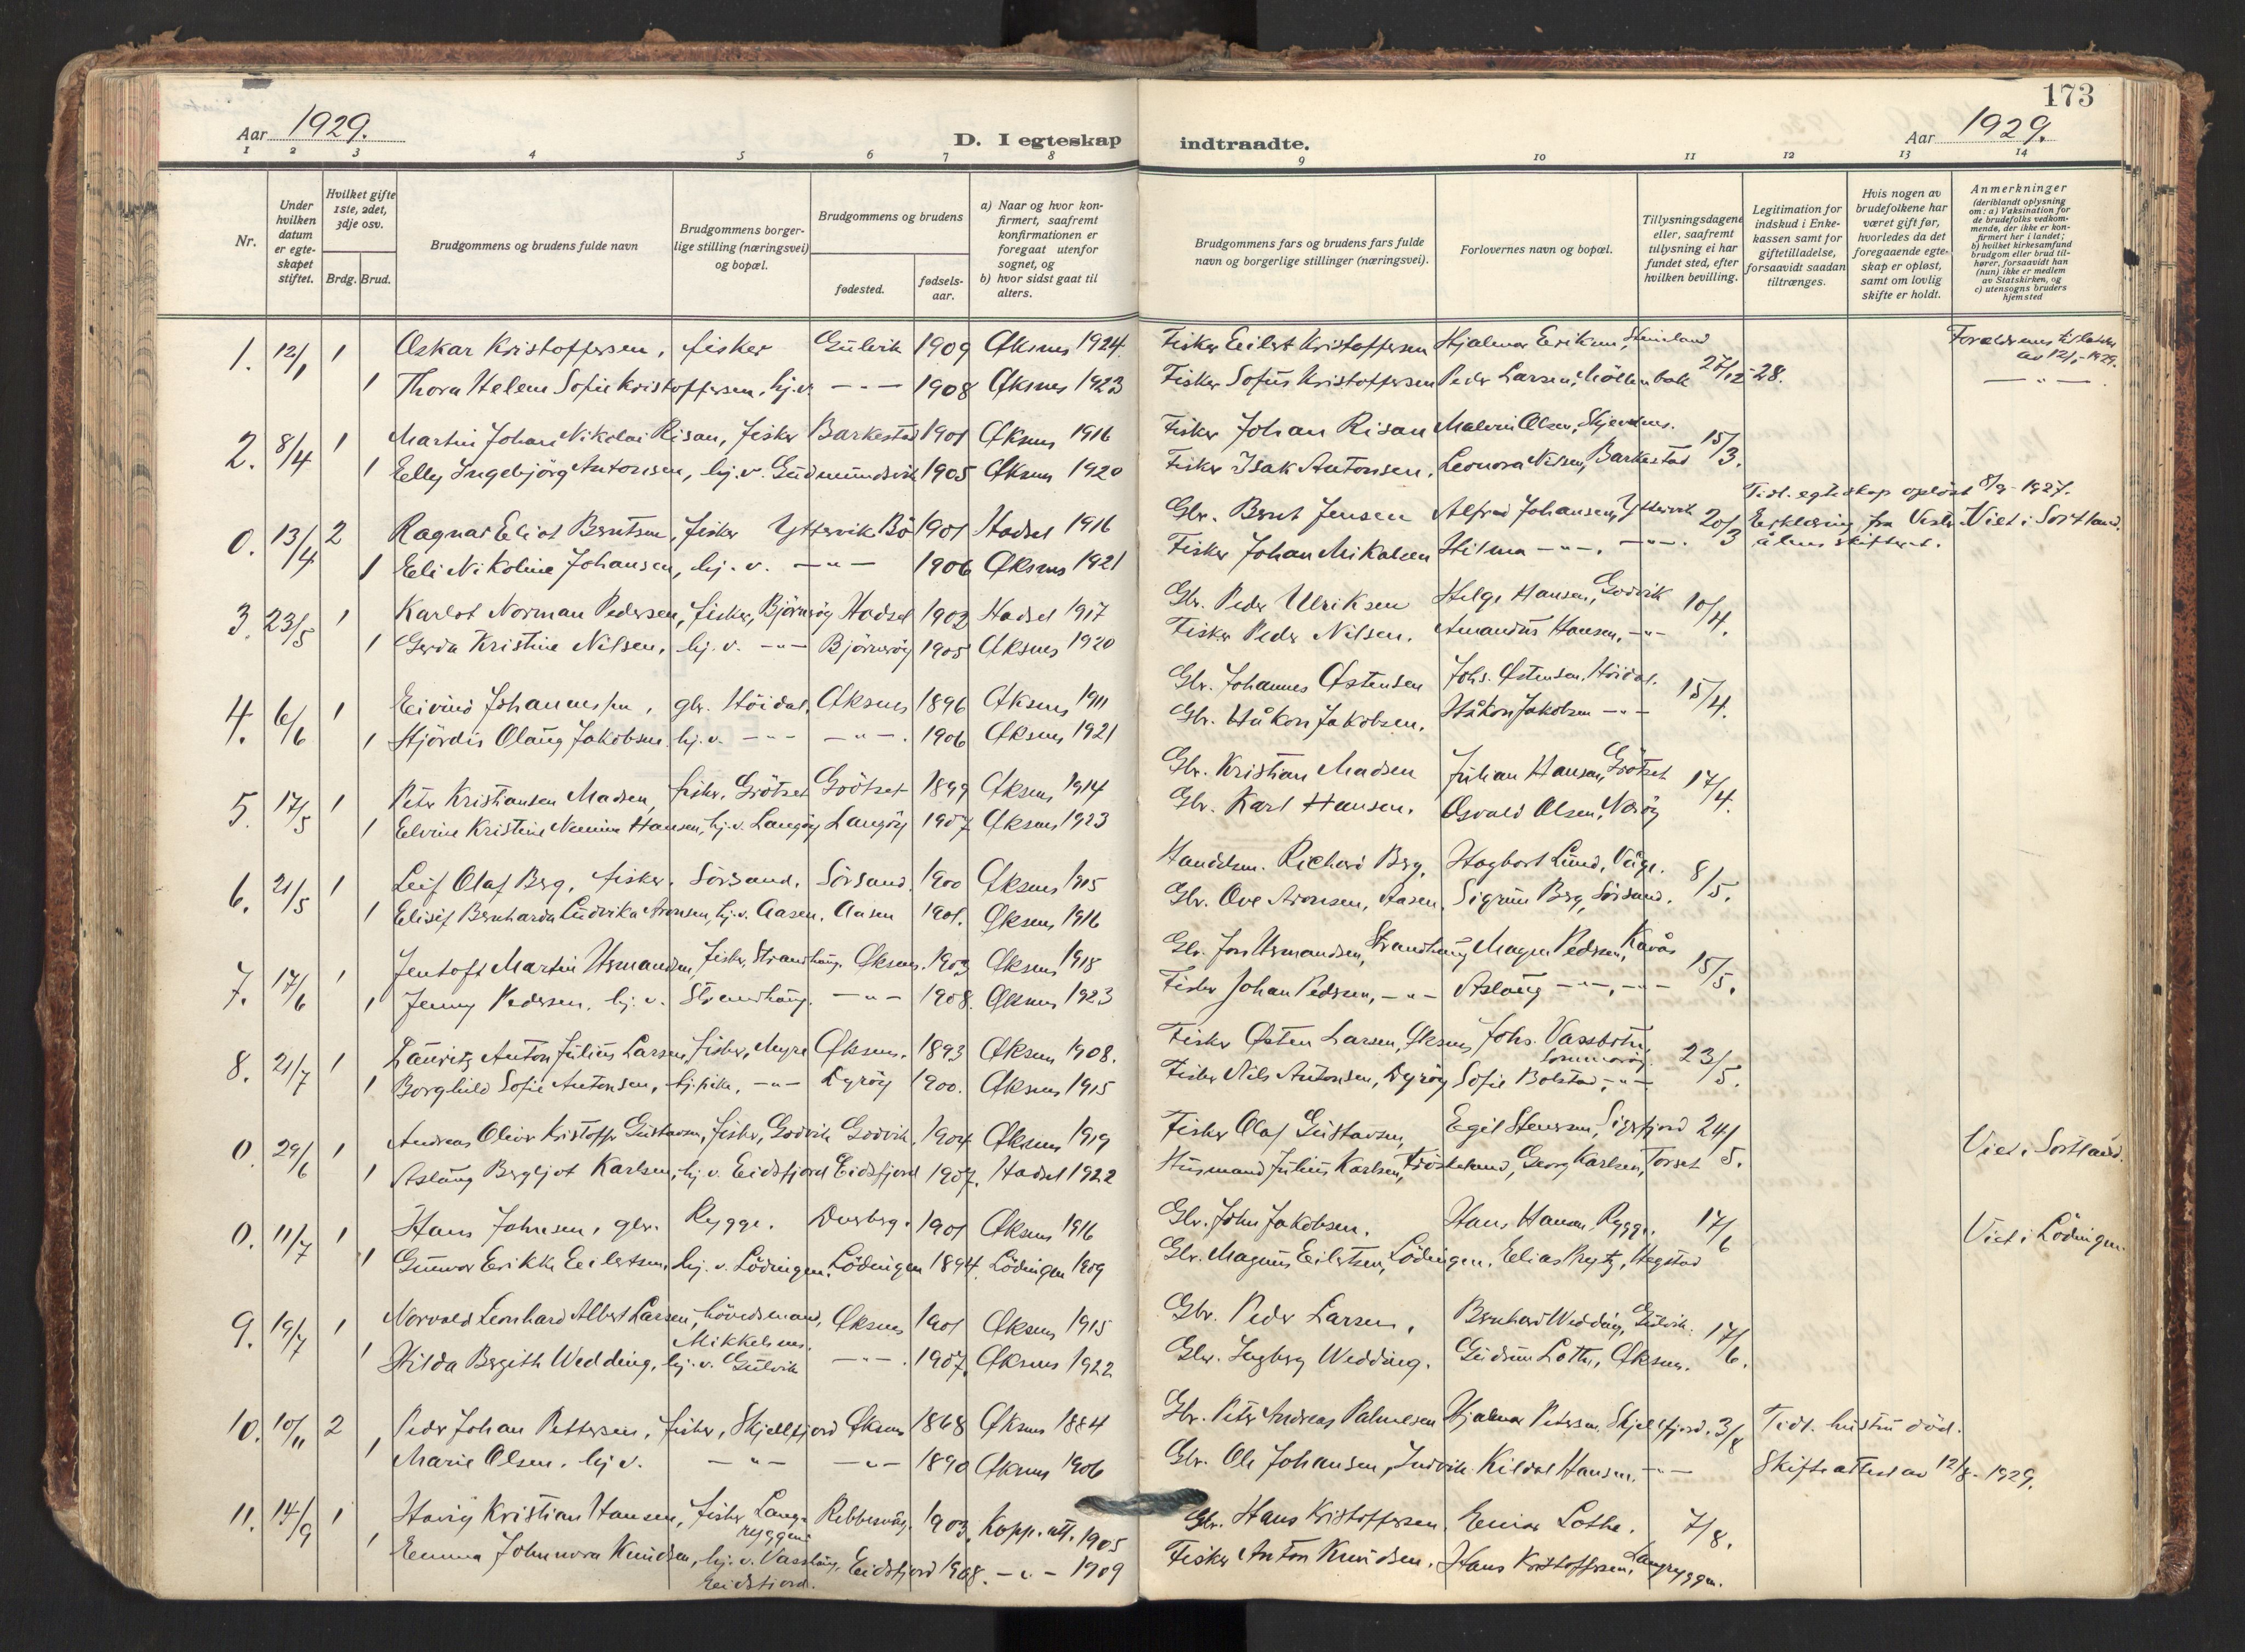 173
Aar 1929. D. I egteskap indtraadte. Aar 1929.
1 2 3 4 5 6 7 8 9 10 11 12 13 14
Nr.
Under hvilken datum er egteskapet stiftet.
Hvilket gifte 1ste, 2det, 3dje osv.
Brdg. Brud.
Brudgommens og brudens fulde navn
Brudgommens borgerlige stilling (næringsvei) og bopæl.
Brudgommens og brudens
fødested.
fødselsaar.
a) Naar og hvor konfirmert, saafremt konfirmationen er foregaat utenfor sognet, og
b) hvor sidst gaat til alters.
Brudgommens fars og brudens fars fulde navn og borgerlige stillinger (næringsvei).
Forlovernes navn og bopæl.
Tillysningsdagene eller, saafremt tillysning ei har fundet sted, efter hvilken bevilling.
Legitimation for indskud i Enkekassen samt for giftetilladelse, forsaavidt saadan tiltrænges.
Hvis nogen av brudefolkene har været gift før, hvorledes da det foregaaende egteskap er opløst, samt om lovlig skifte er holdt.
Anmerkninger (deriblandt oplysning om: a) Vaksination for de brudefolks vedkommende, der ikke er konfirmert her i landet; b) hvilket kirkesamfund brudgom eller brud tilhører, forsaavidt han (hun) ikke er medlem av Statskirken, og c) utensogns bruders hjemsted
1. 12/1 1 Oskar Kristoffersen, fisker Gulvik 1909 Øksnes 1924. Fisker Eilert Kristoffersen Hjalmar Eriksen, Steinland 27/12-28. av 12/1-1929.
1 Thora Helene Sofie Kristoffersen, hj.v. -"- 1908 Øksnes 1923 Fisker Sofus Kristoffersen Peder Larsen, -"-
2. 8/4 1 Martin Johan Nikolai Risan, fisker Barkestad 1901 Øksnes 1916 Fisker Johan Risan Malvin Olsen, 15/3.
1 Elly Ingebjörg Antonsen, hj.v. Gudmundsvik 1905 Øksnes 1920 Fisker Isak Antonsen. Leonora Nilsen, Barkestad
0. 13/4 2 Ragnar Eliot Berntsen, fisker Yttervik Bö 1901 Hadsel 1916 Gbr. Bernt Jensen Alfred Johansen, Yttervik 20/3 Tidl. egteskap opløst 8/9-1927. Erklæring fra skifteret. Viet i Sortland.
1 Eli Nikoline Johansen, hj.v. -"- 1906 Øksnes 1921 Fisker Johan Mikalsen Hilma -"-. -"-.
3. 23/5 1 Karlot Norman Pedersen, fisker, Björnröy Hadsel 1902 Hadsel 1917 Gbr. Peder Ulriksen Helge Hansen, Godvik 10/4.
1 Gerda Kristine Nilsen, hj.v. -"- Björnröy 1905 Øksnes 1920 Fisker Peder Nilsen. Amandus Hansen, -"-
4. 6/6 1 Eivind Johannessen, gbr. Höidal, Øksnes 1896 Øksnes 1911 Gbr. Johannes Østensen Johs. Østensen, Höidal. 15/4.
1 Hjördis Olaug Jakobsen hj.v. -"- -"-. 1906 Øksnes 1921 Gbr. Håkon Jakobsen. Håkon Jakobsen -"-
5. 17/5 1 Peter Kristiansen Madsen, fisker, Grötset Grötset 1899 Øksnes 1914 Gbr. Kristian Madsen Julian Hansen, Grötset 17/4.
1 Elvine Kristine Hansen, hj.v. Langöy Langöy 1907 Øksnes 1923 Gbr. Karl Hansen. Osvald Olsen,
6. 21/5 1 Leif Olaf Berg, fisker. Sörsand. Sörsand. 1900 Øksnes 1915 Handelsm. Richard Berg, Hagbart Lund, 8/5.
1 Elisif Bernharda Ludvika Aronsen, hj.v. Aasen. Aasen 1901. Øksnes 1916 Gbr. Ove Aronsen, Aasen, Sigrun Berg, Sörsand.
7. 17/6 1 Jentoft Martin Hermandsen, fisker, Strandhaug. Øksnes. 1903 Øksnes 1918 Gbr. Jon Hermandsen, Strandhaug Magne Pedersen, Kavås 15/5.
1 Jenny Pedersen. hj.v. Strandhaug. -"- 1908. Øksnes 1923 Fisker Johan Pedersen, -"- Aslaug -"-, -"-
8. 21/7 1 Lauritz Anton Julius Larsen, fisker, Myre Øksnes. 1893 Øksnes 1908. Fisker Østen Larsen, Øksnes Johs. Vassbotn, 23/5.
1 Borghild Sofie Antonsen, -"- Dyröy 1900. Øksnes 1915 Fisker Nils Antonsen, Dyröy Sofie Bolstad, -"-
0. 29/6 1 Andreas Oliver Kristoffer Gustavsen, fisker, Godvik Godvik. 1904 Øksnes 1919 Fisker Olaf Gustavsen, Egil Stenersen, Sigerfjord 24/5. Viet i Sortland.
1 Aslaug Bergljot Karlsen, hj.v. Eidsfjord Eidsfjord 1907. Hadsel 1922 Husmand Julius Karlsen, Georg Karlsen, Torset
0. 11/7 1 Hans Johnsen, gbr. Rygge. Dverberg. 1901 Øksnes 1916 Gbr. John Jakobsen. Hans Hansen, Rygge. 17/6 Viet i Lödingen.
1 Gunvor Erikke Eilertsen, hj.v. Lödingen. Lödingen 1894. Lödingen 1909 Gbr. Magnus Eilertsen, Lödingen. Elias Hegstad
9. 19/7 1 Norvald Leonhard Albert Larsen, hövedsmand, Mikkelsnes. Øksnes 1901 Øksnes 1915 Gbr. Peder Larsen, Bernhard Wedding, Gulvik. 17/6.
1 Hilda Bergith Wedding, hj.v. Gulvik -"-. 1907. Øksnes 1922 Gbr. Ingberg Wedding. Gudrun Lothe, Øksnes.
10. 10/11 2 Peder Johan Pettersen, fisker, Skjellfjord Øksnes 1868 Øksnes 1884 Gbr. Peter Andreas Hjalmar Petersen, Skjellfjord. 3/8 Tidl. hustru död.
1 Marie Olsen. hj.v. -"- -"- 1890 Øksnes 1906 Gbr. Ole Johansen, Kildal Hansen, -"- Skifteattest av 12/8-1929.
11. 14/9 1 Havig Kristian Hansen, fisker Langryggen 1903, Kopp.att. 1905 Gbr. Hans Kristoffersen. Einar Lothe. 7/8.
1 Emma Johnnora Knudsen, hj.v. Eidsfjord. Eidsfjord 1908. -"- 1909 Fisker Anton Knudsen. Hans Kristoffersen, Langryggen.